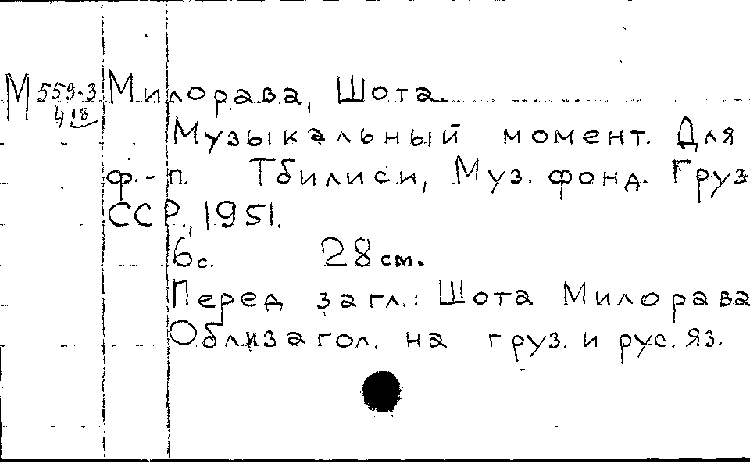 М 559-3 Милорава, Шота.
418
Музыкальный момент. Для
ф.-п. Тбилиси, Муз. фонд. Груз
ССР, 1951.
6с. 28 см.
Перед загл.: Шота Милорава
Обл. и загол. на груз. и рус. яз.